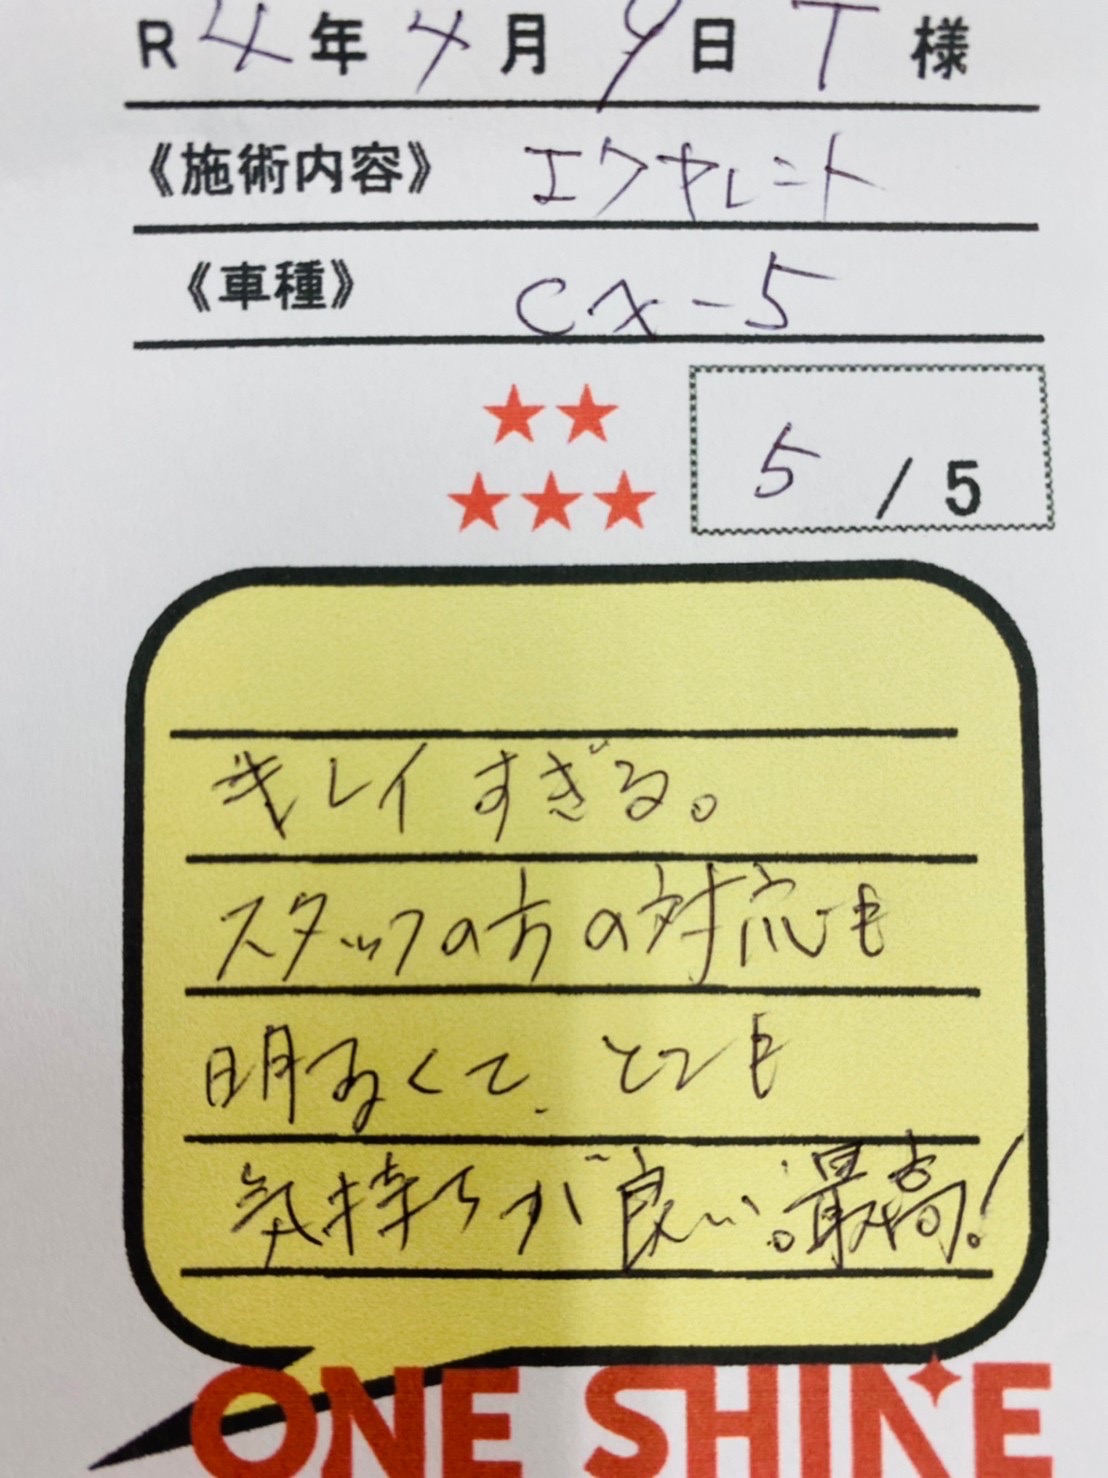 R 4年 4月 9日 T 様
《施術内容》 エクセレント
《車種》 CX-5
5 / 5
キレイすぎる。
スタッフの方の対応も
明るくて、とても
気持ちが良い。最高!
ONE SHINE